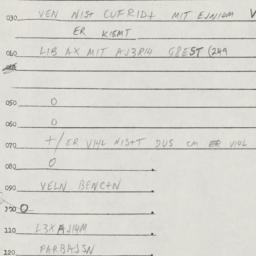 030 VEN NIST CUFRIDT MIT EJNIHM V
ER KIBMT
040 LIB AX MIT AJ3R14 GBEST (249
050 O
060 O
070 +/ER VIHL NIST DUS CM ER VIHL
080 O
090 VELN BENCTN
100 O
110 L3X AJIHM
120 FARBAJSN